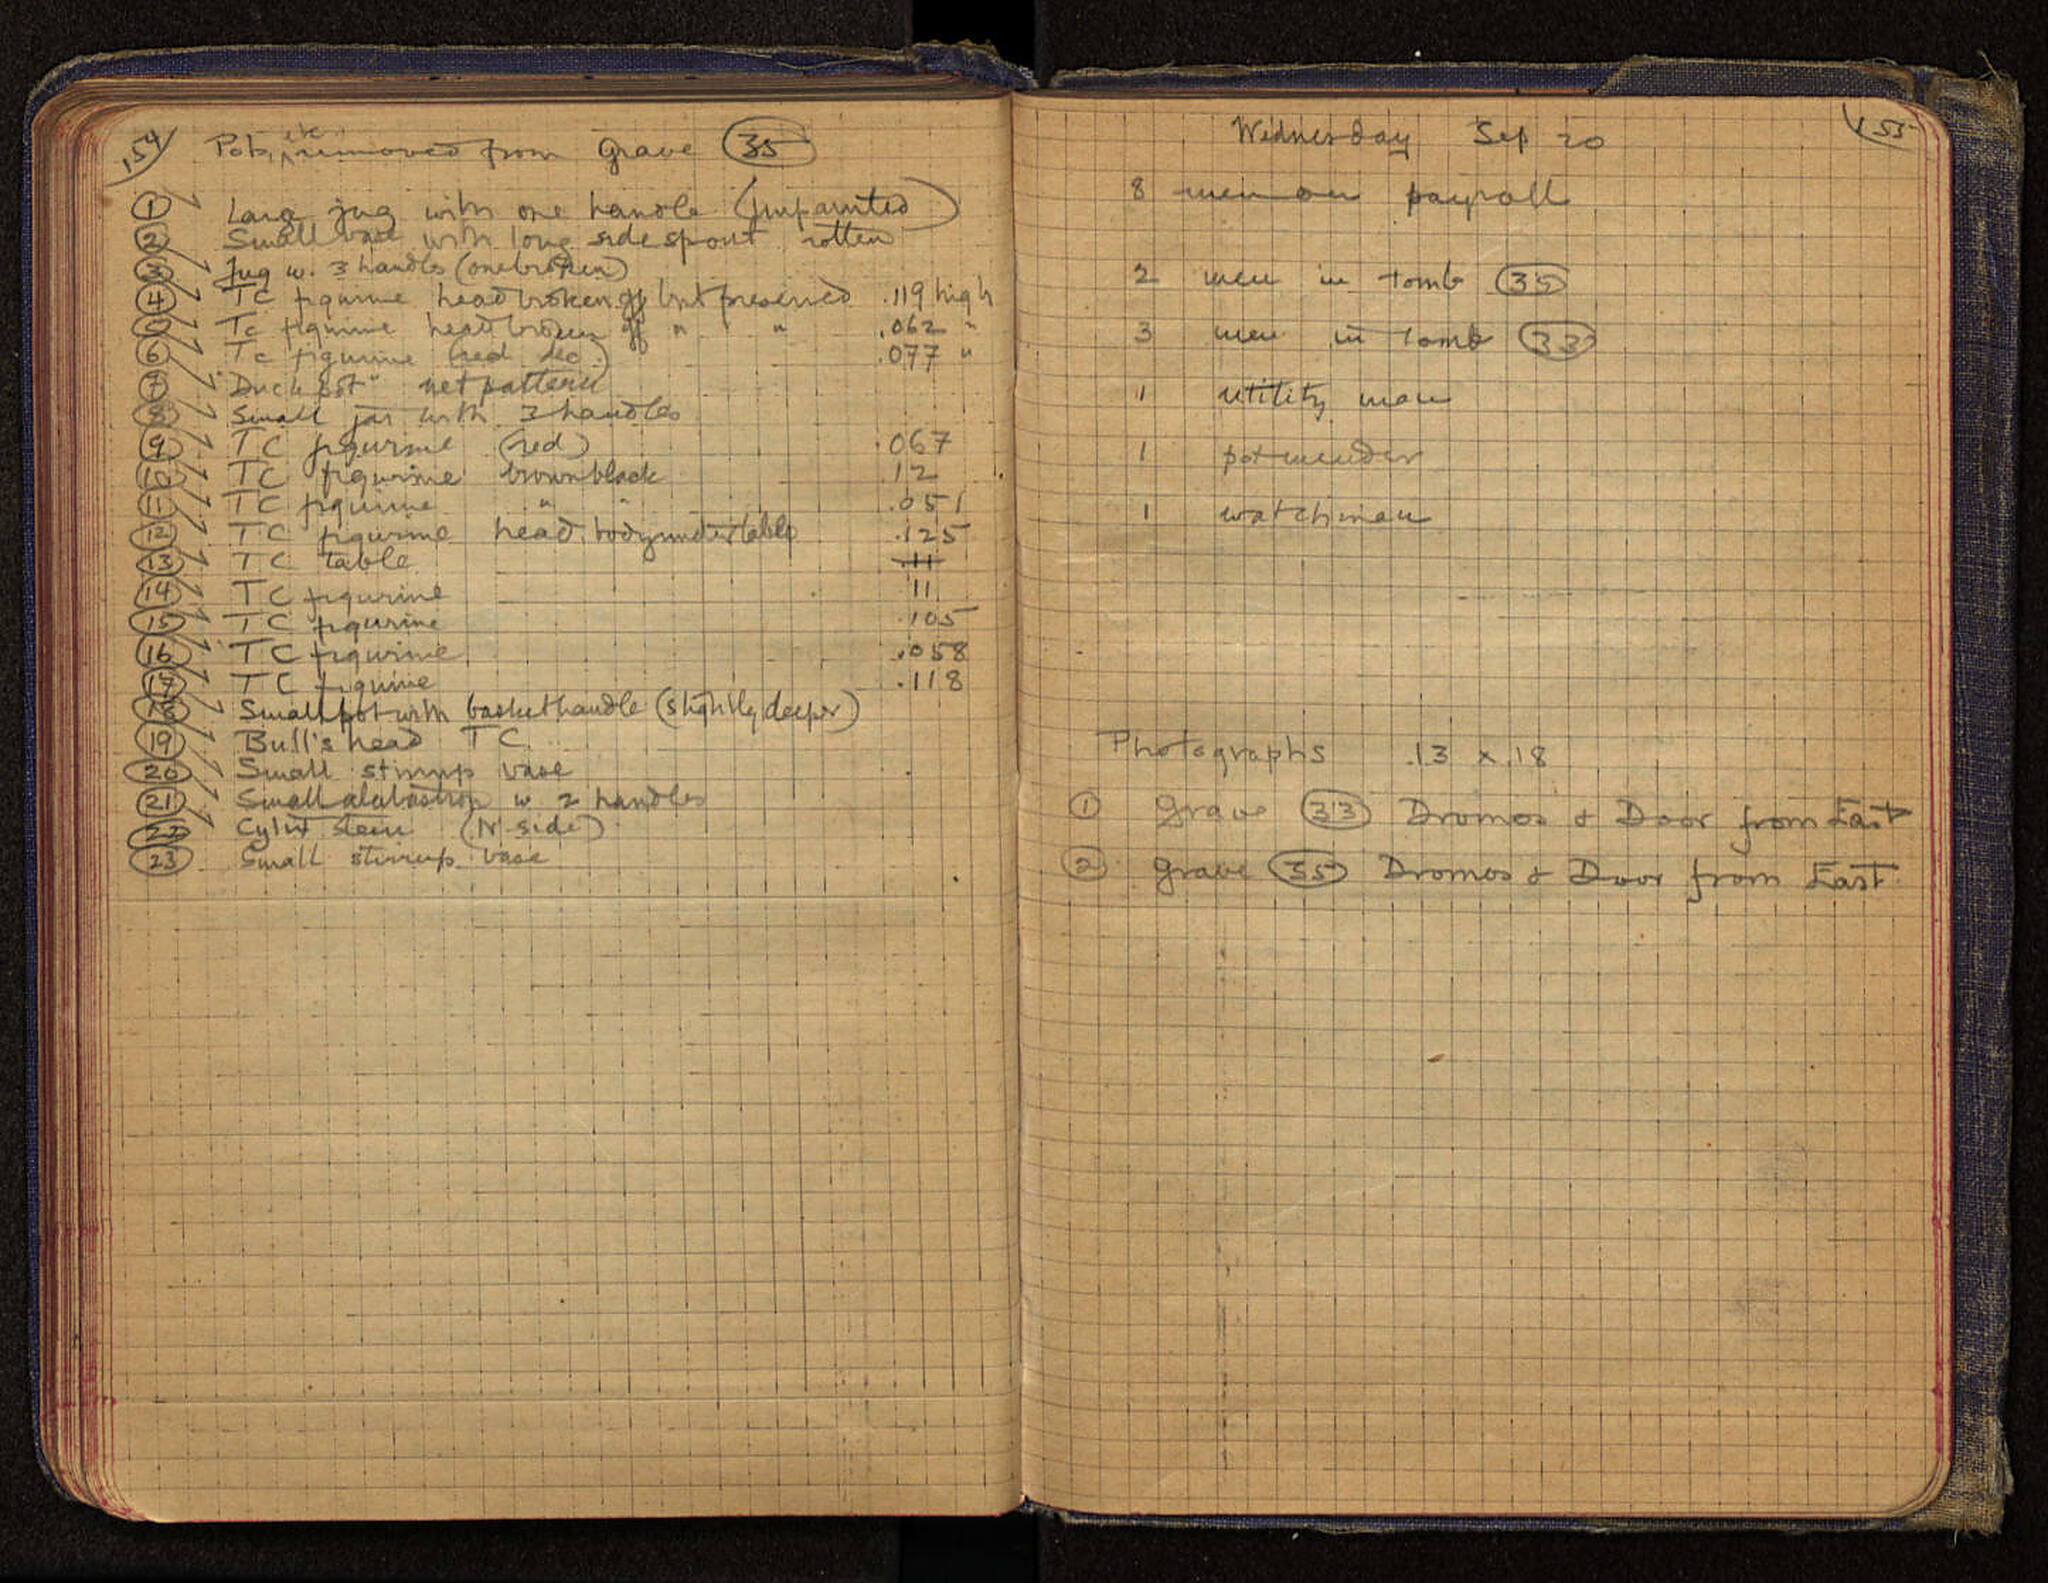 154
Pots, etc removed from Grave 35
1 Large jug with one handle (unpainted)
2 Small vase with long side spout rotten
3 Jug w. 3 handles (one broken)
4 TC figurine head broken off but preserved .119 high
5 TC figurine head broken off " " " .062 "
6 TC figurine (red dec.) .077 "
7 "Duck pot" net pattern
8 Small jar with 3 handles
9 TC figurine (red) .067
10 TC figurine brown black .12
11 TC figurine " " .051
12 TC figurine head, body under table .125
13 TC table .11
14 TC figurine .11
15 TC figurine .105
16 TC figurine .058
17 TC figurine .118
18 Small pot with basket handle (slightly deeper)
19 Bull's head TC
20 Small stirrup vase
21 Small alabastron w 2 handles
22 stein (N side)
23 Small stirrup vase
155
Wednesday Sep 20
8 men on payroll
2 men in tomb 35
3 men in tomb 33
1 utility man
1 potmender
1 watchman
Photographs .13 x .18
1 Grave 33 Dromos & Door from East
2 Grave 35 Dromos & Door from East